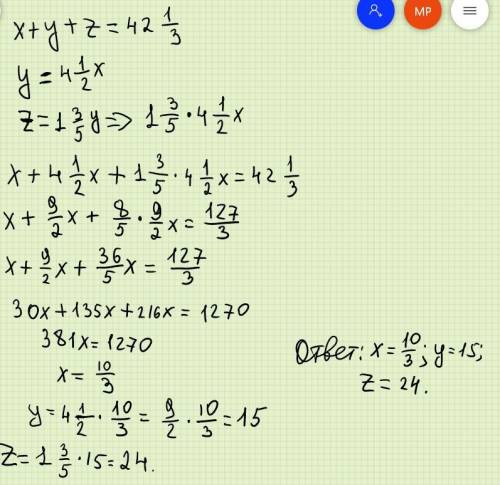 MP
x+y+z=42 1/3
y=4 1/2 x
z=1 3/5 y=> 1 3/5 · 4 1/2 x
x+4 1/2 x+1 3/5 · 4 1/2 x=42 1/3
x+ 9/2 x+ 8/5 · 9/2 x= 127/3
x+ 9/2 x+ 36/5 x= 127/3
30x+135x+216x=1270
381x=1270
x= 10/3
y=4 1/2 · 10/3 = 9/2 · 10/3 =15
z=1 3/5 ·15=24.
Ответ: x= 10/3; y=15;
z=24.